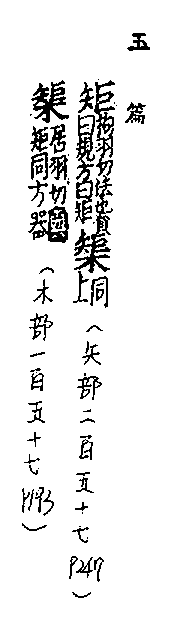 五篇
矩拘羽切法也員曰規方曰矩榘同上(矢部二百五十七P247)
榘居羽切圖矩同方器(木部一百五十七P193)